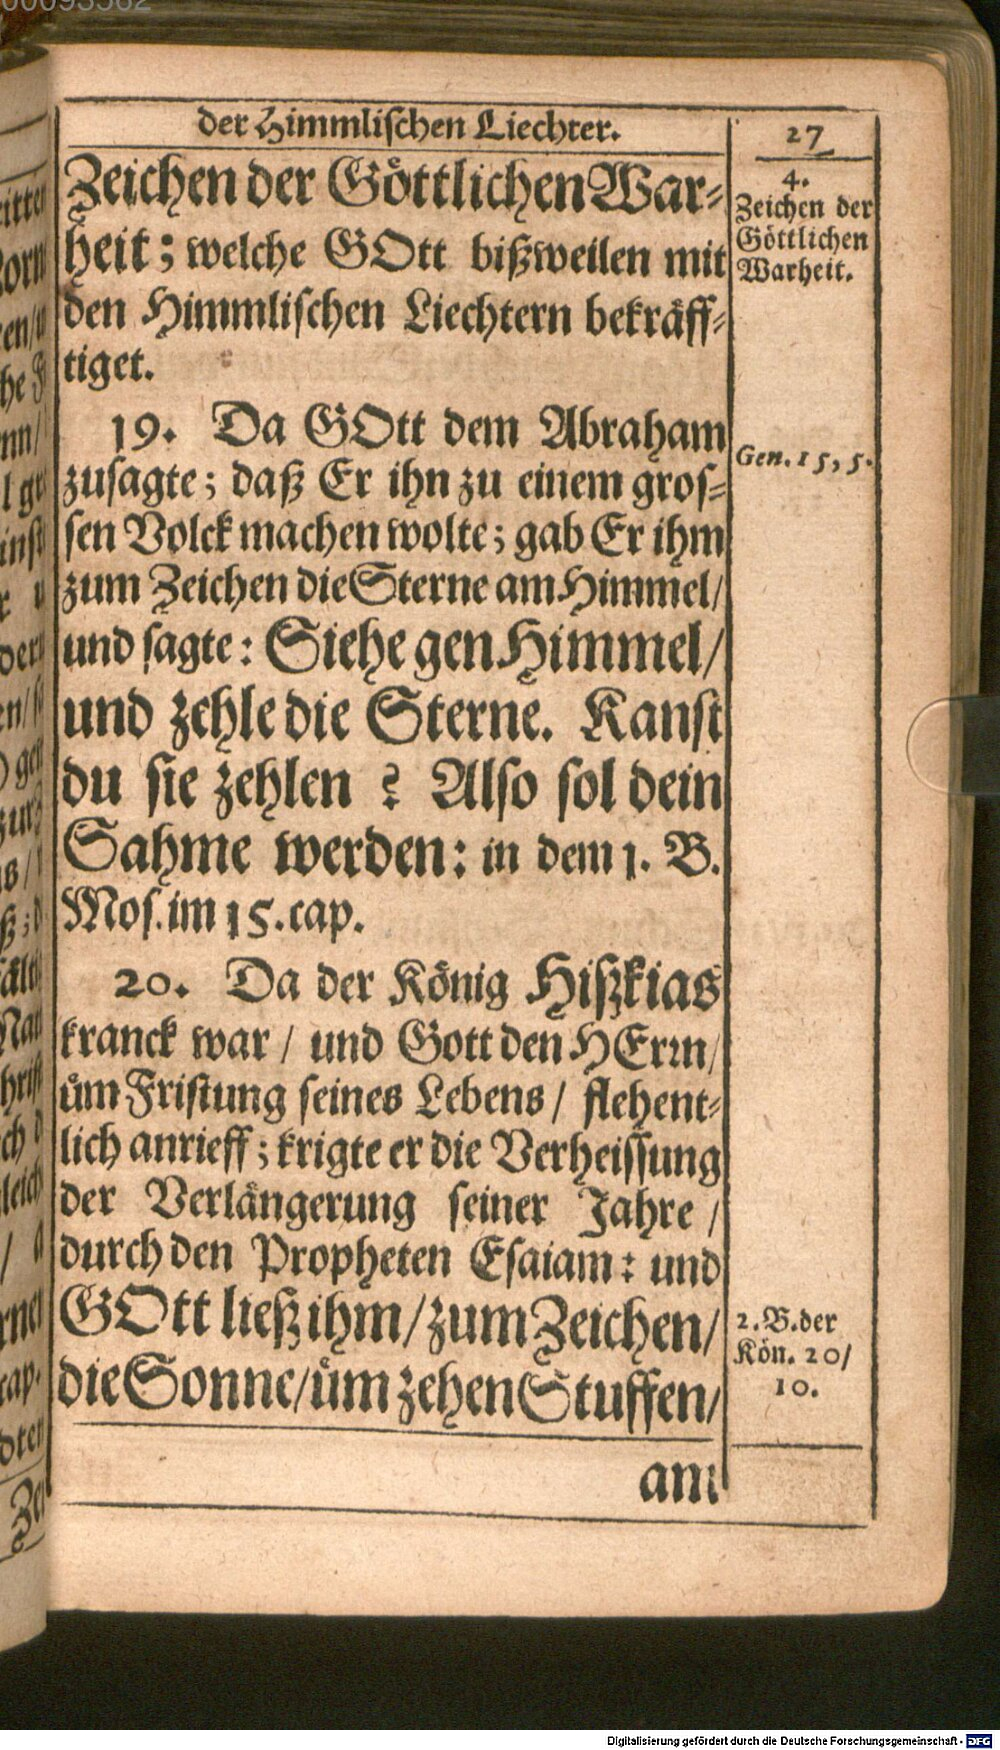 00093562
der Himmlischen Liechter.
27
Zeichen der Göttlichen War-
heit; welche GOtt bißweilen mit
den Himmlischen Liechtern bekräff-
tiget.
4.
Zeichen der
Göttlichen
Warheit.
19. Da GOtt dem Abraham
zusagte; daß Er ihn zu einem gros-
sen Volck machen wolte; gab Er ihm
zum Zeichen die Sterne am Himmel/
und sagte: Siehe gen Himmel/
und zehle die Sterne. Kanst
du sie zehlen? Also sol dein
Sahme werden: in dem 1. B.
Mos. im 15. cap.
Gen. 15, 5.
20. Da der König Hißkias
kranck war / und Gott den HErrn/
üm Fristung seines Lebens / flehent-
lich anrieff; krigte er die Verheissung
der Verlängerung seiner Jahre /
durch den Propheten Esaiam: und
GOtt ließ ihm/ zum Zeichen/
die Sonne/ üm zehen Stuffen/
2. B. der
Kön. 20/
10.
am
Digitalisierung gefördert durch die Deutsche Forschungsgemeinschaft - DFG